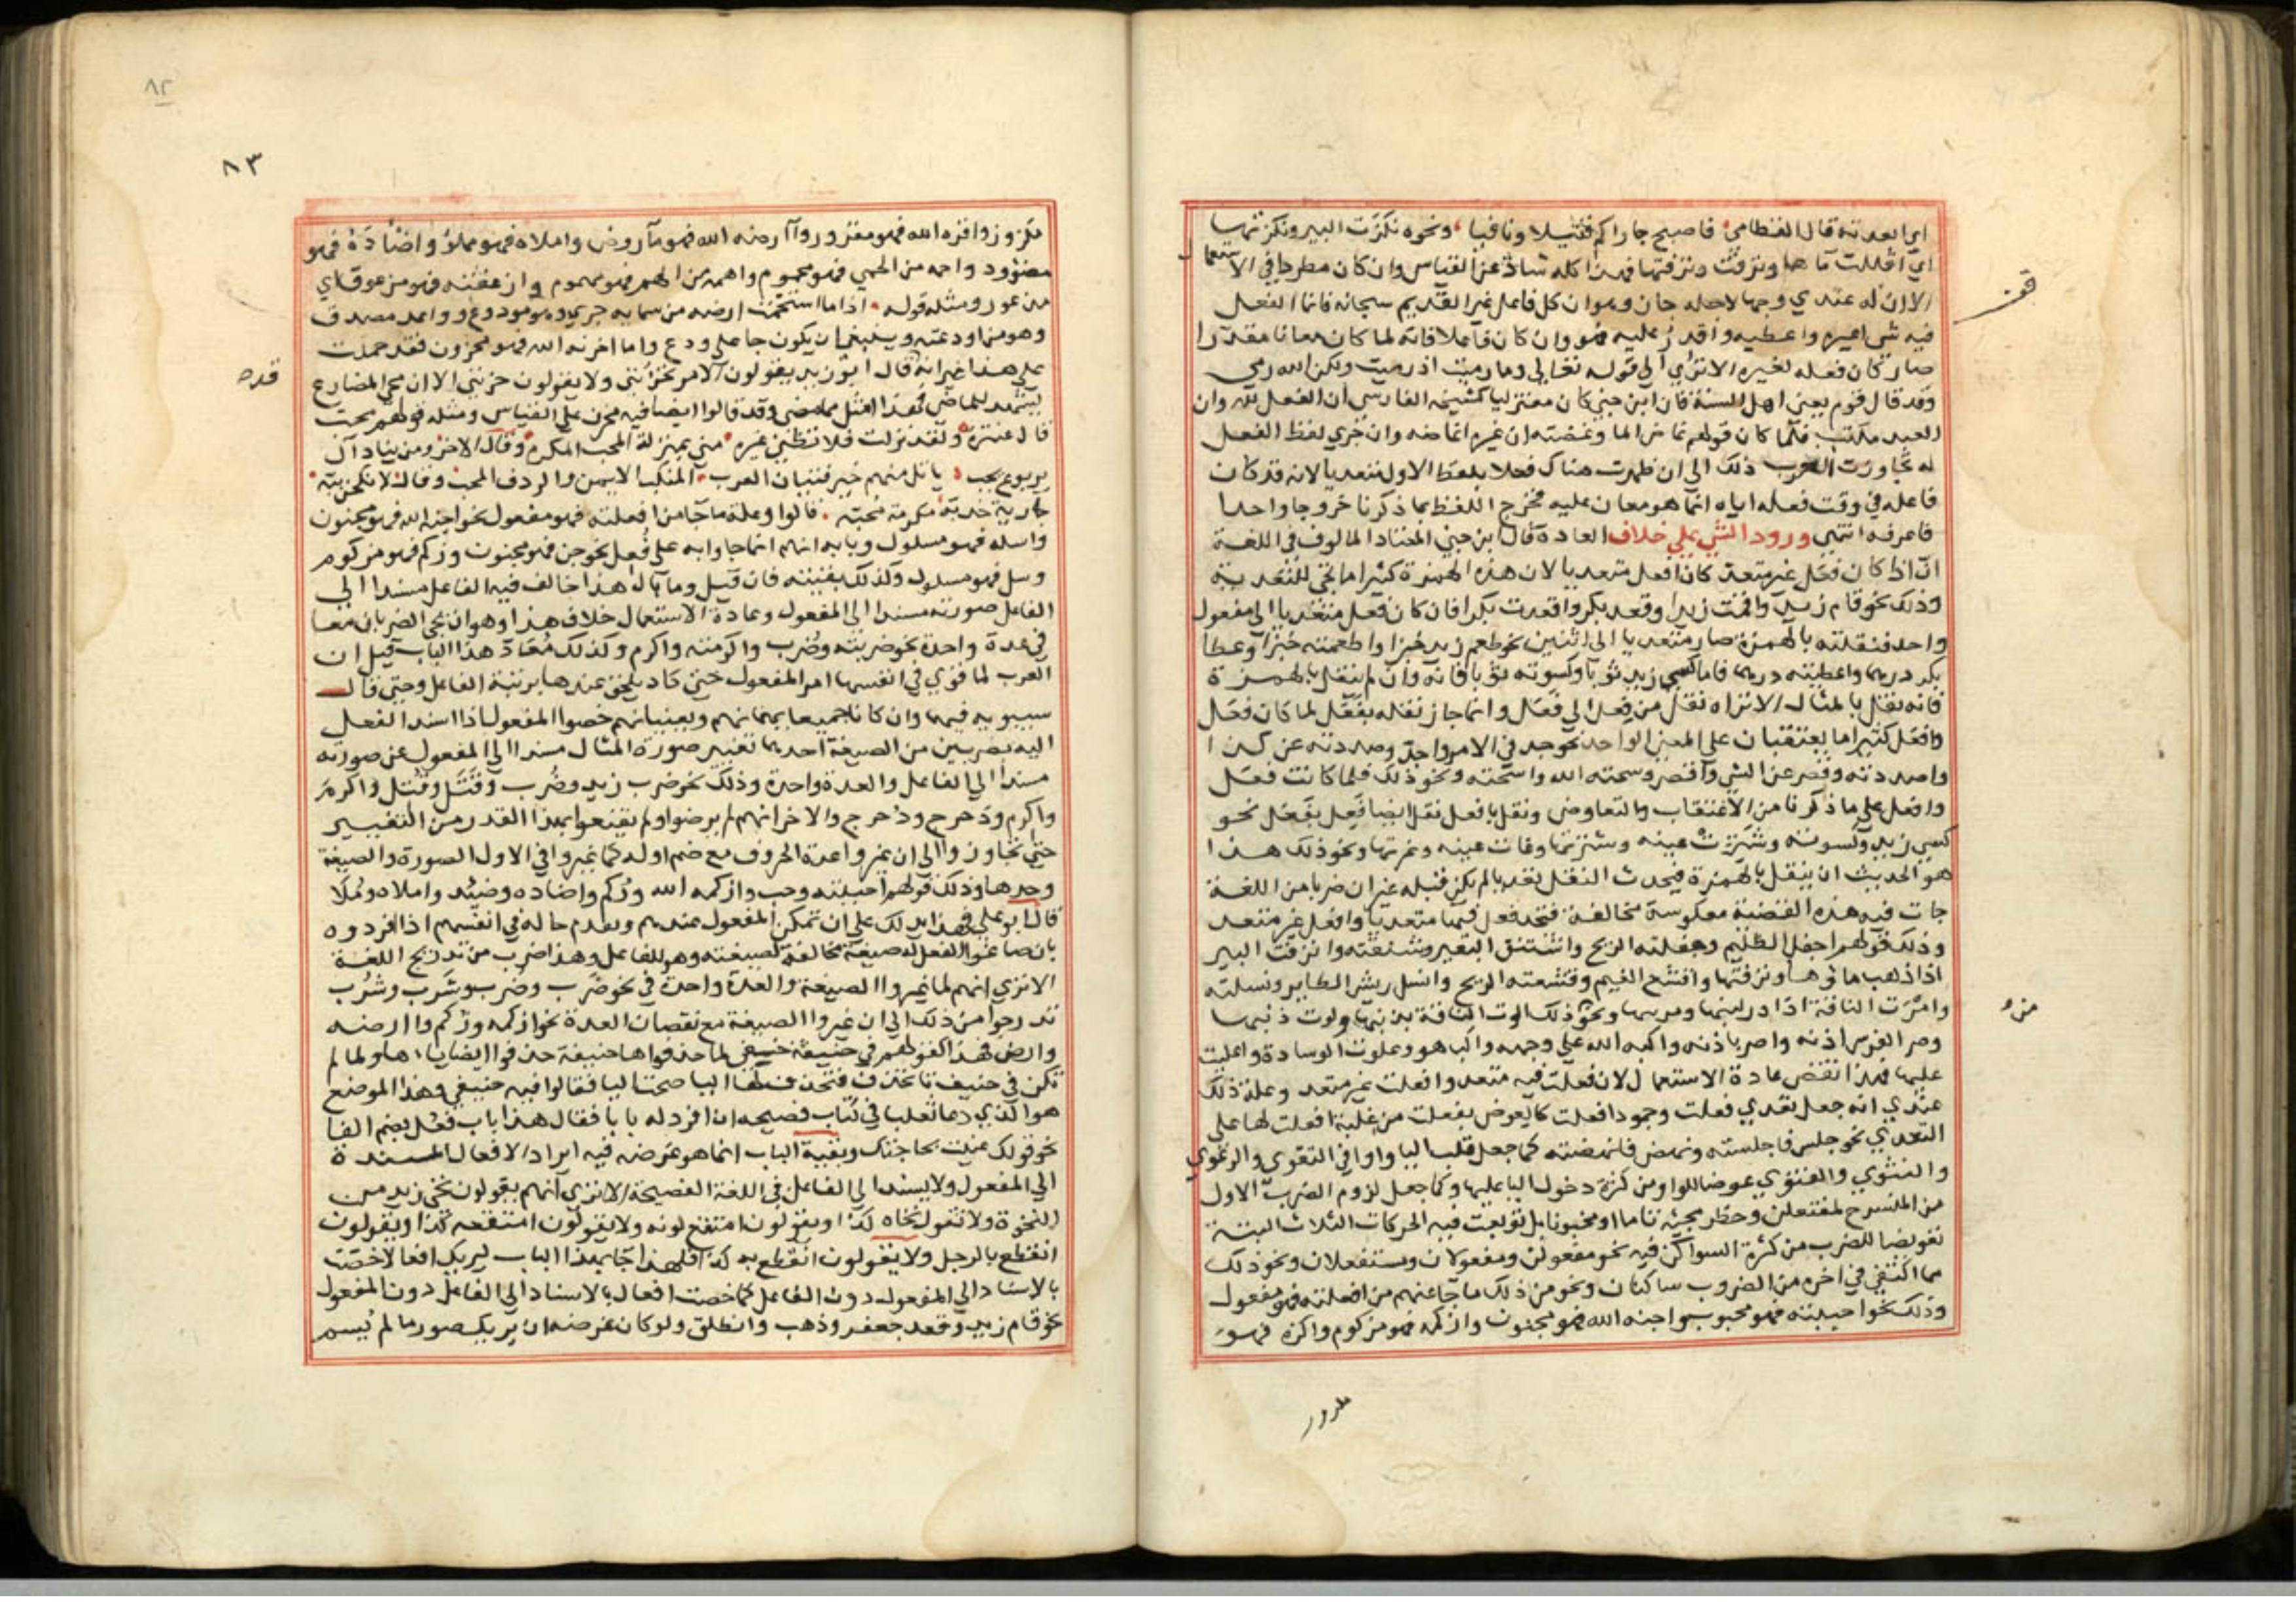 اي ابعدته قال القطامي فاصبح جاراكم قتيلا ونافيا ونحوه نكزت البير ونكزتها
اي اقللت ماها ونزفت ونزفتها فهذا كله شاذ عن القياس وان كان مطردا في الاستعمال
الا ان له عندي وجها لاجله جاز وهو ان كل فاعل غير القديم سبحانه فانما الفعل
فيه شي اعيره واعطيه واقدر عليه فهو وان كان فاعلا فانه لما كان معانا مقدرا
صار كان فعله لغيره الا تري الي قوله تعالي وما رميت اذ رميت ولكن الله رمي
وقد قال قوم يعني اهل السنة فان ابن جني كان معتزليا كشيخه الفارسي ان الفعل لله وان
العبد مكتسب فلما كان قولهم غاض الما وغضته ان غيره اغاضه وان جري لفظ الفعل
له تجاوزت العرب ذلك الي ان ظهرت هناك فعلا بلفظ الاول متعديا لانه قد كان
فاعله في وقت فعله اياه انما هو معان عليه فخرج اللفظ بما ذكرنا خروجا واحدا
فاعرفه انتهي ورود الشي علي خلاف العادة قال بن جني المعتاد المالوف في اللغة
انه اذا كان فعل غير متعد كان افعل متعديا لان هذه الهمزة كثيرا ما تجي للتعدية
وذلك نحو قام زيد واقمت زيدا وقعد بكر واقعدت بكرا فان كان فعل متعديا الي مفعول
واحد فنقلته بالهمزة صار متعديا الي اثنين نحو طعم زيد خبزا واطعمته خبزا وعطا
بكر درهما واعطيته درهما فاما كسي زيد ثوبا وكسوته ثوبا فانه وان لم ينقل بالهمزة
فانه نقل بالمثال الا تراه نقل من فعل الي فعل وانما جاز نقله بفعل لما كان فعل
وافعل كثيرا ما يعتقبان علي المعني الواحد نحو جد في الامر واجد وصددته عن كذا
واصددته وقصر عن الشي واقصر وسحته الله واسحته ونحو ذلك فلما كانت فعل
وافعل علي ما ذكرنا من الاعتقاب والتعاوض ونقل بافعل نقل ايضا فعل بفعل نحو
كسي زيد وكسوته وشترت عينه وشترتها وعارت عينه وعرتها ونحو ذلك هذا
هو الحديث ان ينقل بالهمزة فيحدث النقل تعديا لم يكن قبله غير ان ضربا من اللغة
جات فيه هذه القضية معكوسة مخالفة فتجد فعل فيها متعديا وافعل غير متعد
وذلك قولهم اجفل الظليم وجفلته الريح واشنق البعير وشنقته وانزفت البير
اذا ذهب ماوها ونزفتها واقشع الغيم وقشعته الريح وانسل ريش الطاير ونسلته
وامرت الناقة اذا در لبنها ومريتها ونحو ذلك الوت الناقة بذنبها ولوت ذنبها
وصر الفرس اذنه واصر باذنه واكبه الله علي وجهه واكب هو وعلوت الوسادة واعليت
عليها فهذا نقض عادة الاستعمال لان فعلت فيه متعد وافعلت غير متعد وعلة ذلك
عندي انه جعل تعدي فعلت وجمود افعلت كالعوض لفعلت من غلبة افعلت لها علي
التعدي نحو جلس فاجلسته ونهض فانهضته كما جعل قلب اليا واوا في التقوي والرعوي
والثنوي والفتوي عوضا للواو من كثرة دخول اليا عليها وكما جعل لزوم الضرب الاول
من المنسرح لمفتعلن وحظر مجيئه تاما او مخبونا بل توبعت فيه الحركات الثلاث البتة
تعويضا للضرب من كثرة السواكن فيه نحو مفعولن ومفعولان ومستفعلان ونحو ذلك
مما التقي في اخره من الضروب ساكنان ونحو من ذلك ما جا عنهم من افعلته فهو مفعول
وذلك نحو احببته فهو محبوب واجنه الله فهو مجنون وازكمه فهو مزكوم واكزه فهو
٨٢
٨٣
مكزوز واقره الله فهو مقرور واارضه الله فهو مأروض واملاه فهو مملوء واضأده فهو
مضؤود واحمه من الحمي فهو محموم واهمه من الهم فهو مهموم وازعقته فهو مزعوق اي
مذعور ومثله قوله اذا ما استحمت ارضه من سمايه جري وهو مودوع وواعد مصدق
وهو من اودعته وينبغي ان يكون جا علي ودع واما احزنه الله فهو محزون فقد حملت
علي هذا غير انه قال ابو زيد يقولون الامر يحزنني ولا يقولون حزنني الا ان مجي المضارع
يشهد للماضي فهذا امثل مما مضي وقد قالوا ايضا فيه محزن علي القياس ومثله قولهم محب
قال عنترة ولقد نزلت فلا تظني غيره مني بمنزلة المحب المكرم وقال الاخر ومن يناد آل
يربوع يجب ياتك منهم خير فتيان العرب المنكب الايمن والردف المحب وقال لانكحن ببه
جارية خدبة مكرمة محبه قالوا وعلة ما جا من افعلته فهو مفعول نحو اجنه الله فهو مجنون
واسله فهو مسلول وبابه انهم انما جاوا به علي فعل نحو جن فهو مجنون وزكم فهو مزكوم
وسل فهو مسلول وكذلك بقيته فان قيل وما بال هذا خالف فيه الفاعل مسندا الي
الفاعل صورته مسندا الي المفعول وعادة الاستعمال خلاف هذا وهو ان يجي الضربان معا
في عدة واحدة نحو ضربته وضرب واكرمته واكرم وكذلك مقاد هذا الباب قيل ان
العرب لما قوي في انفسها امر المفعول حتي كاد يلحق عندها برتبة الفاعل وحتي قال
سيبويه فيهما وان كانا جميعا يهمانهم ويعنيانهم خصوا المفعول اذا اسند الفعل
اليه بضربين من الصيغة احدهما تغيير صورة المثال مسندا الي المفعول عن صورته
مسندا الي الفاعل والعدة واحدة وذلك نحو ضرب زيد وضرب وقتل وقتل واكرم
واكرم ودحرج ودحرج والاخر انهم لم يرضوا ولم يقنعوا بهذا القدر من التغيير
حتي تجاوزوا الي ان غيروا عدة الحروف مع ضم اوله كما غيروا في الاول الصورة والصيغة
وحدها وذلك قولهم احببته وحب وازكمه الله وزكم واضاده وضئد واملاه وملا
قال ابو علي فهذا يدلك علي ان تمكن المفعول عندهم وتقدم حاله في انفسهم اذ افردوه
بان صاغوا الفعل له صيغة مخالفة لصيغته وهو للفاعل وهذا ضرب من تدريج اللغة
الا تري انهم لما غيروا الصيغة والعدة واحدة في نحو ضرب وضرب وشرب وشرب
تدرجوا من ذلك الي ان غيروا الصيغة مع نقصان العدة نحو ازكمه وزكم واارضه
وارض فهذا كقولهم في حنيفة حنفي لما حذفوا هاحنيفة حذفوا ايضا ياءها ولما لم
تكن في حنيف تا تحذف فتحذف لها اليا صحت اليا فقالوا فيه حنيفي وهذا الموضع
هو الذي دعا ثعلبا في كتاب فصيحه ان افرد له بابا فقال هذا باب فعل بضم الفا
نحو قولك عنيت بحاجتك وبقية الباب انما هو غرضه فيه ايراد الافعال المسندة
الي المفعول ولا يسند الي الفاعل في اللغة الفصيحة الا تري انهم يقولون نخي زيد من
النخوة ولا تقول نخاه كذا ويقولون امتقع لونه ولا يقولون امتقعه كذا ويقولون
انقطع بالرجل ولا يقولون انقطع به كذا فلهذا جا بهذا الباب ليريك افعالا خصت
بالاسناد الي المفعول دون الفاعل كما خصت افعال بالاسناد الي الفاعل دون المفعول
نحو قام زيد وقعد جعفر وذهب وانطلق ولو كان غرضه ان يريك صور ما لم يسم